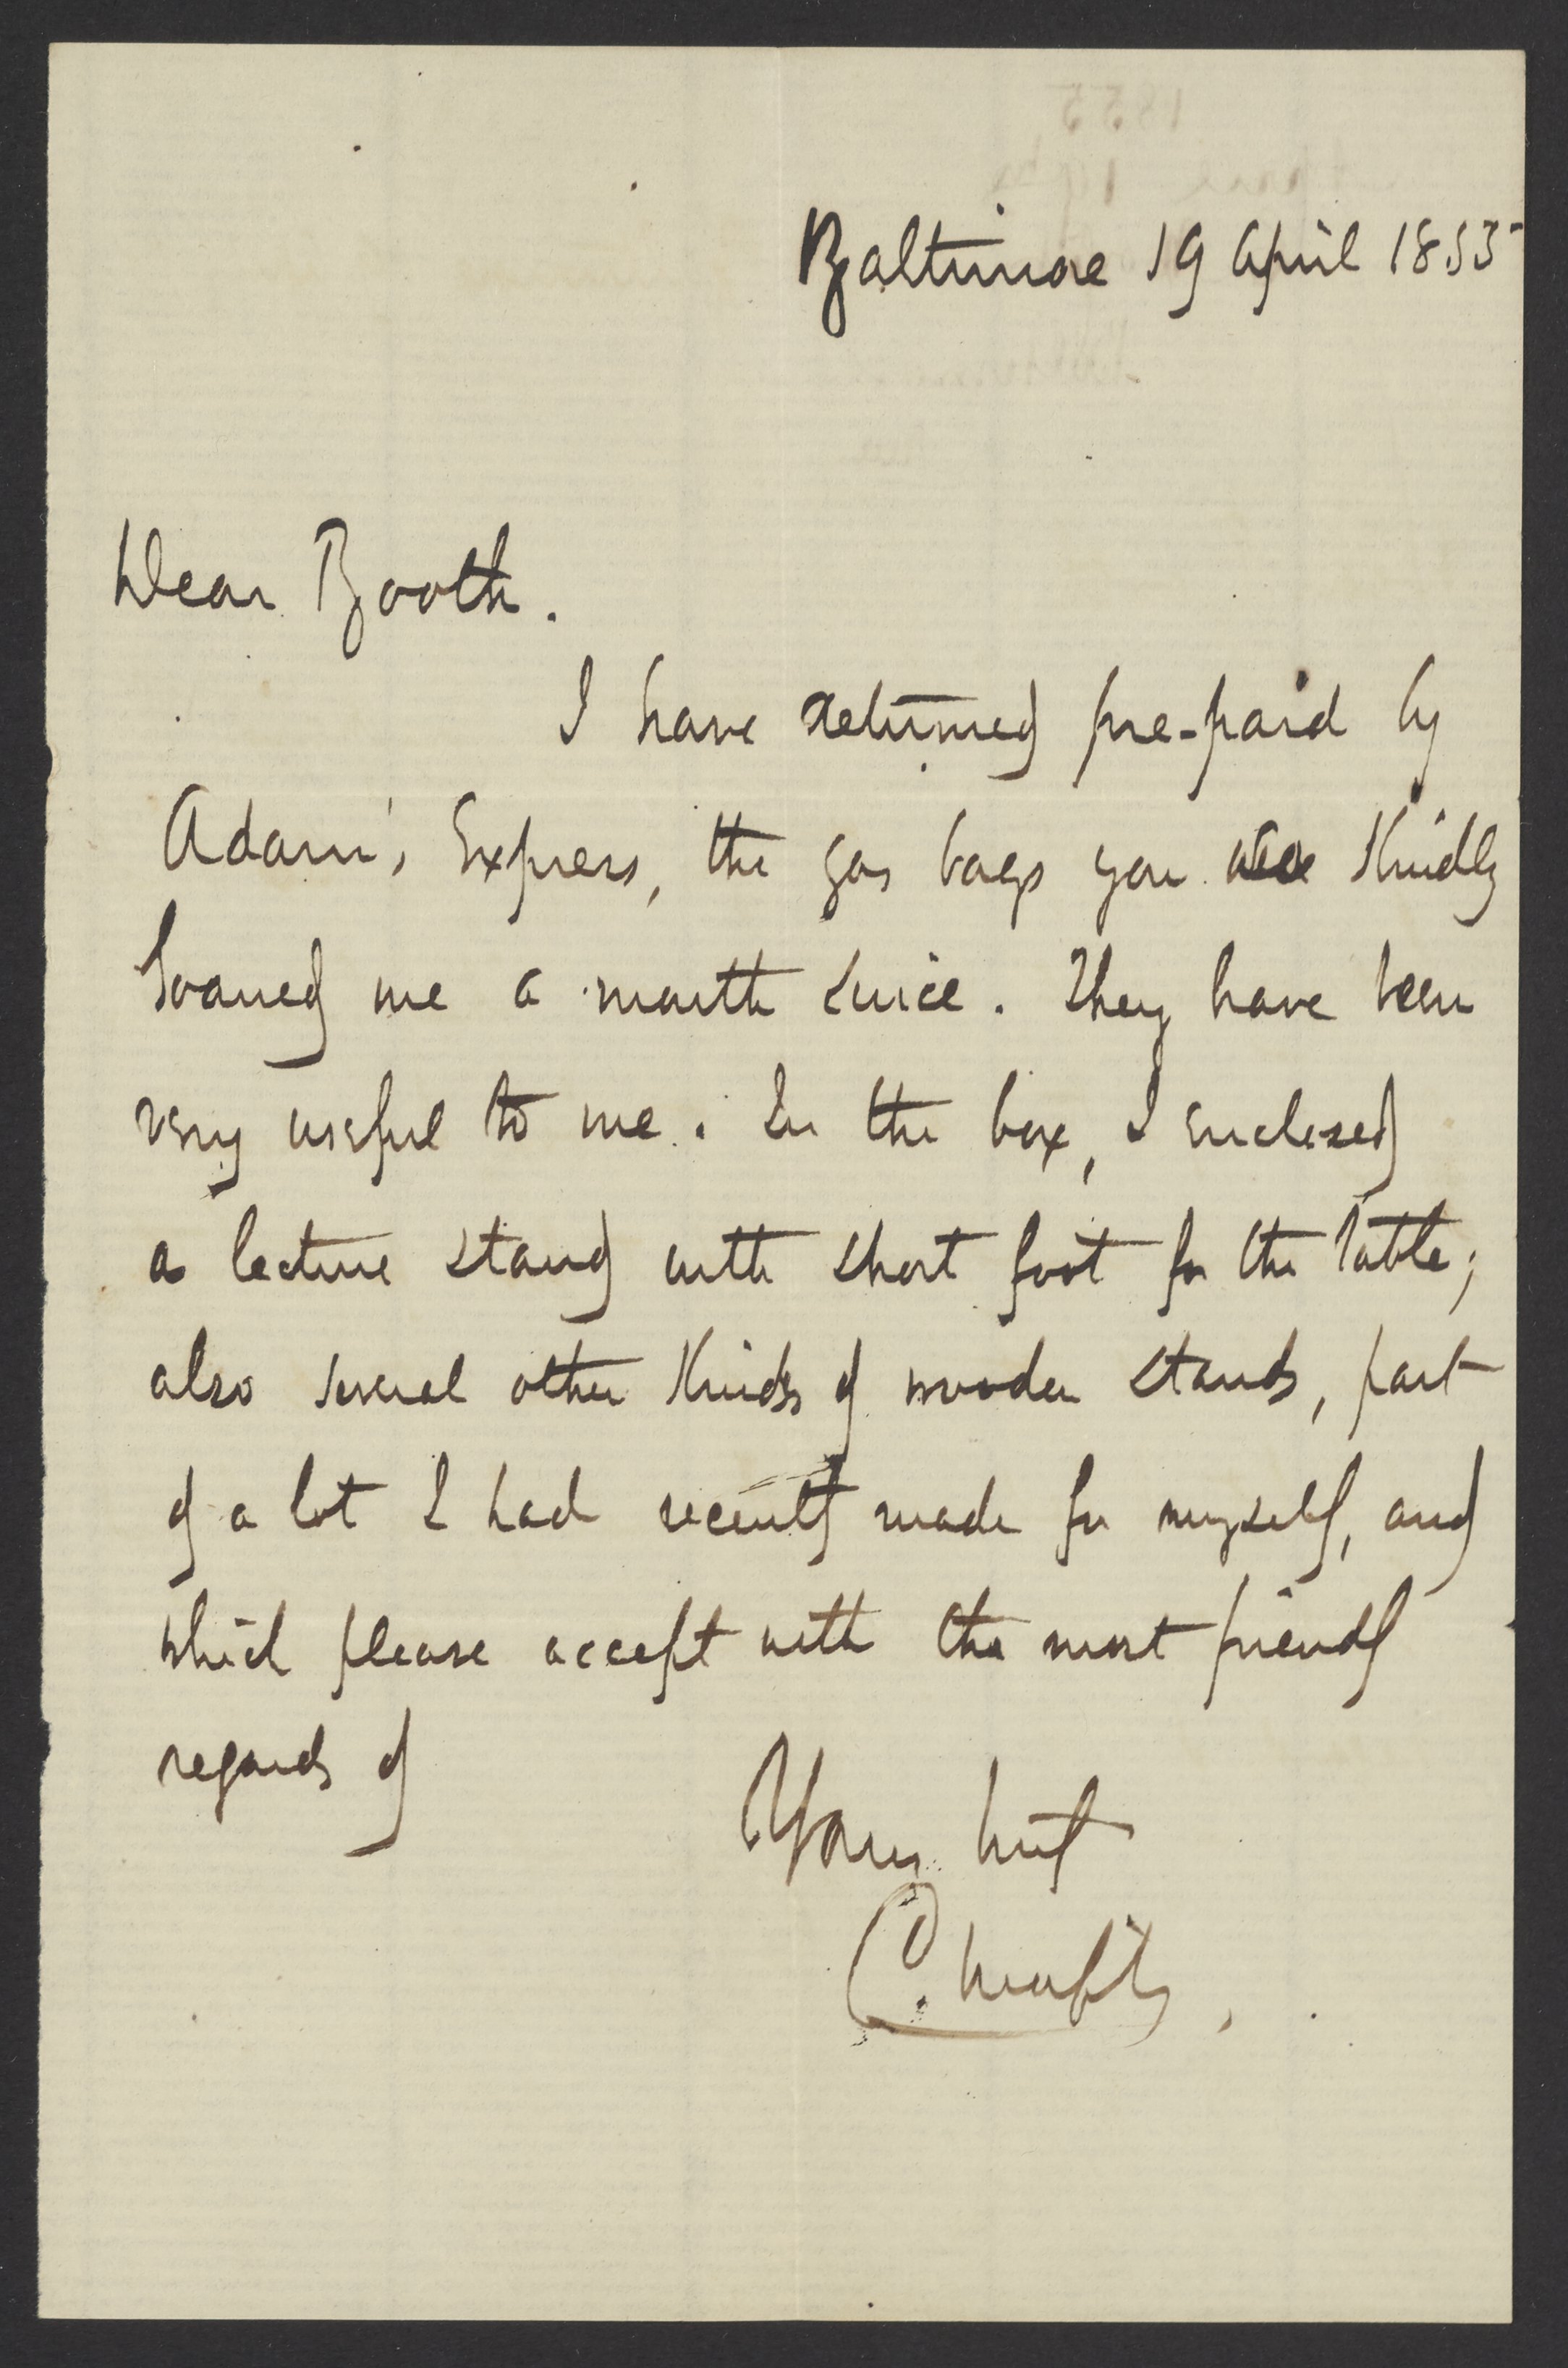 Baltimore 19 April 1855
Dear Booth.
I have returned pre-paid by
Adam's Express, the gas bags you kindly
loaned me a month since. They have been
very useful to me. In the box, I enclosed
a lecture stand with short foot for the table;
also several other kinds of wooden stands, part
of a lot I had recently made for myself, and
which please accept with the most friendly
regards of
Yours
C.